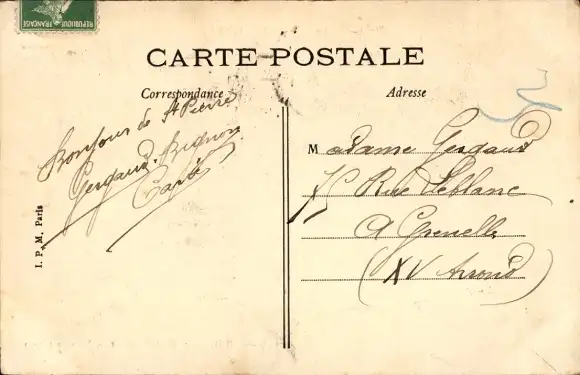 REPUBLIQUE FRANÇAISE
CARTE POSTALE
Correspondance
Adresse
Bonjour de St Pierre
Gergaud
Madame Gergaud
Rue Leblanc
A Grenelle
(XV Arrond)
I. P. M. Paris